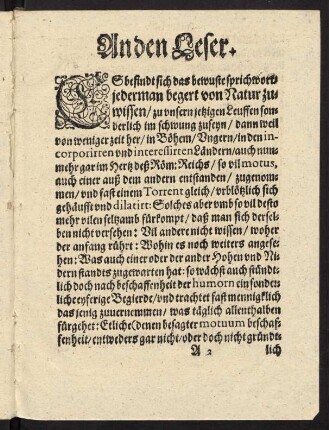 An den Leser.
ES befindt sich das bewuste sprichwort/
jederman begert von Natur zu-
wissen/ zu vnsern jetzigen Leuffen son-
derlich im schwung zuseyn/ dann weil
von weniger zeit her/ in Böhem/ Vngern/ in den in-
corporirten vnd interessirten Ländern/ auch nun-
mehr gar im Hertz deß Röm: Reichs/ so vil motus,
auch einer auß dem andern entstanden/ zugenom-
men/ vnd fast einem Torrent gleich/ vrblötzlich sich
gehäufft vnd dilatirt: Solches aber vmb so vil desto
mehr vilen seltzamb fürkompt/ daß man sich dersel-
ben nicht versehen: Vil andere nicht wissen/ woher
der anfang rührt: Wohin es noch weiters angese-
hen: Was auch einer oder der ander Hohen vnd Ni-
dern stands zugewarten hat: so wächst auch stündt-
lich doch nach beschaffenheit der humorn ein sondt-
liche eyferige Begierde/ vnd trachtet fast mennigklich
das jenig zuuernemmen/ was täglich allenthalben
fürgehet: Etliche (denen besagter motuum beschaf-
fenheit/ entweders gar nicht/ oder doch nicht gründt-
A 2 lich